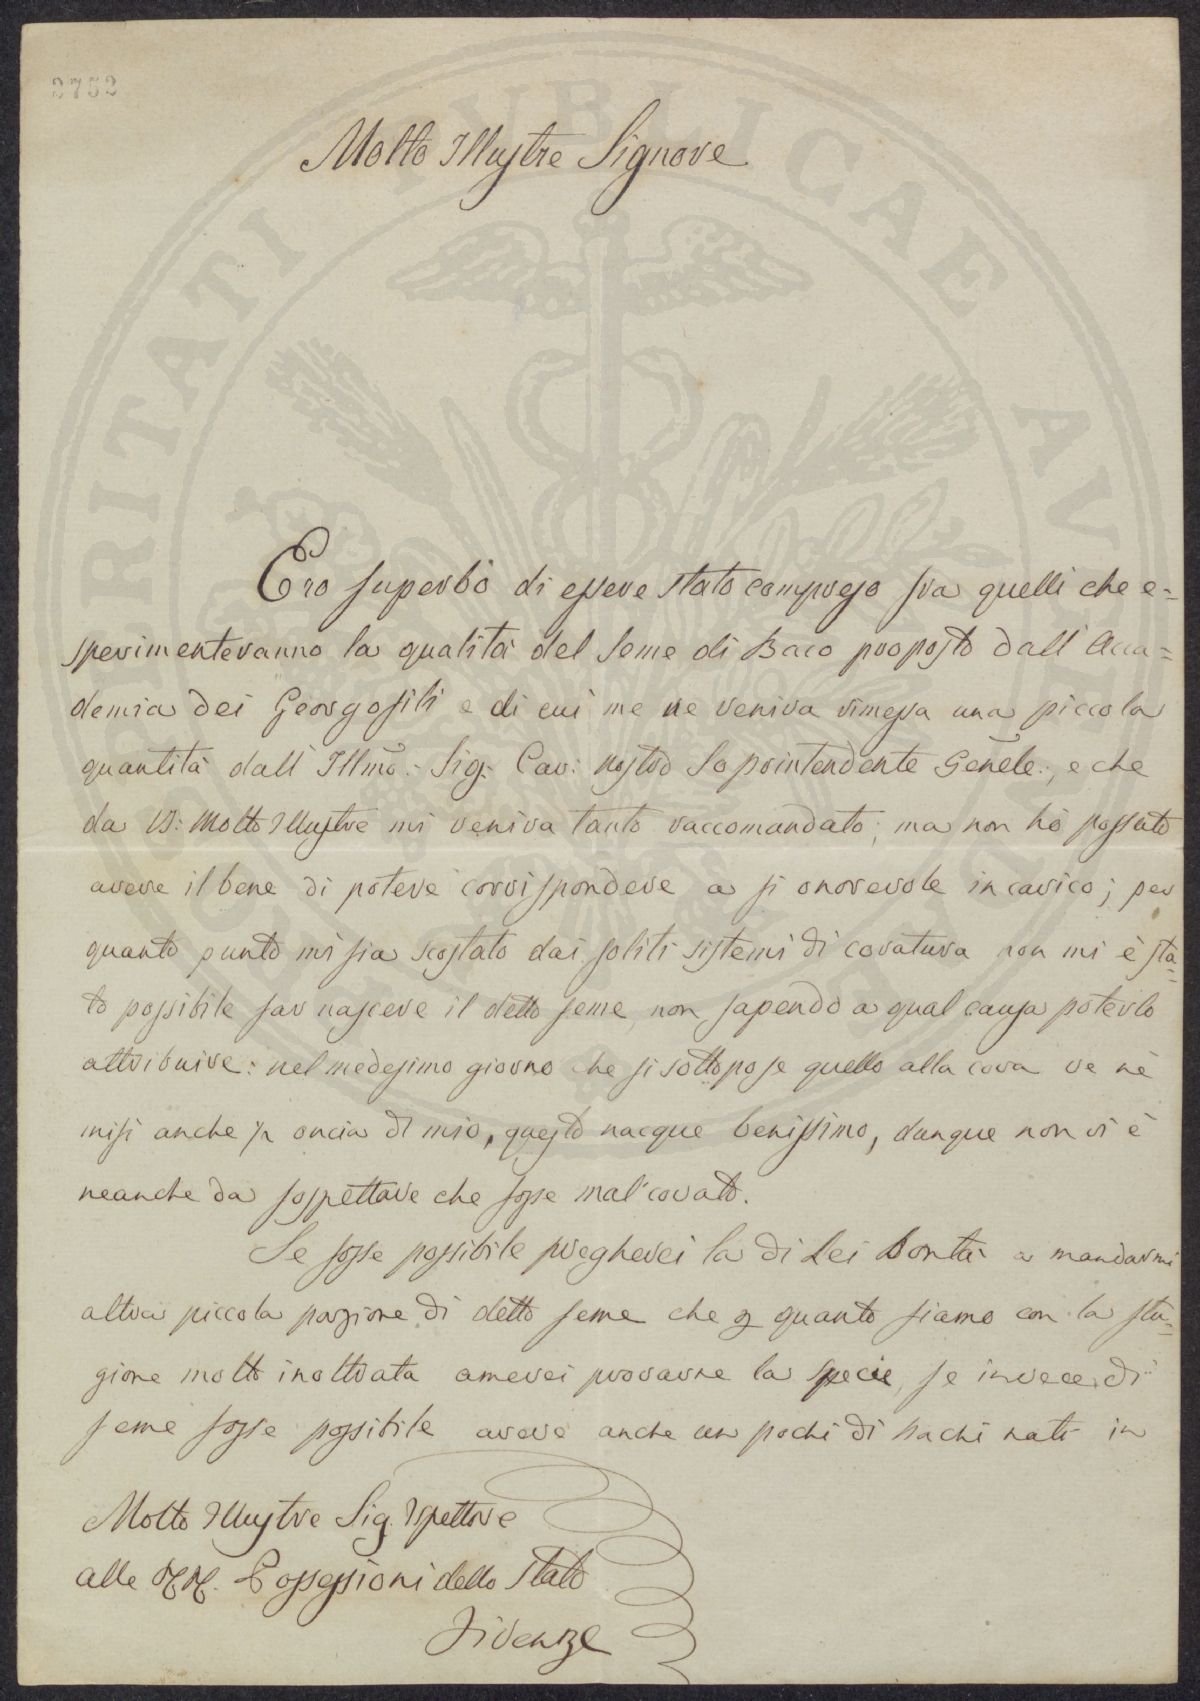 2752
Molto Illustre Signore
Ero superbo di essere stato compreso fra quelli che e=
sperimenteranno la qualità del Seme di Baco proposto dall'Acca=
demia dei Georgofili e di cui me ne veniva rimessa una piccola
quantità dall'Illmo. Sig. Cav: nostro Soprintendente Genele:, e che
da VS: Molto Illustre mi veniva tanto raccomandato; ma non hò possuto
avere il bene di potere corrispondere a sì onorevole incarico; per
quanto punto mi sia scostato dai soliti sistemi di covatura non mi è sta=
to possibile far nascere il detto seme, non sapendo a qual causa poterlo
attribuire: nel medesimo giorno che si sottopose quello alla cova ve nè
misi anche ½ oncia di mio, questo nacque benissimo, dunque non vi è
neanche da sospettare che fosse mal'covato.
Se fosse possibile pregherei la di Lei Bontà a mandarmi
altra piccola porzione di detto seme che p quanto siamo con la sta=
gione molto inoltrata amerei provarne la specie, se invece di
seme fosse possibile avere anche un pochi di bachi nati in
Molto Illustre Sig. Ispettore
alle RR. Possessioni dello Stato
Firenze
PUBLICAE AU RITATI